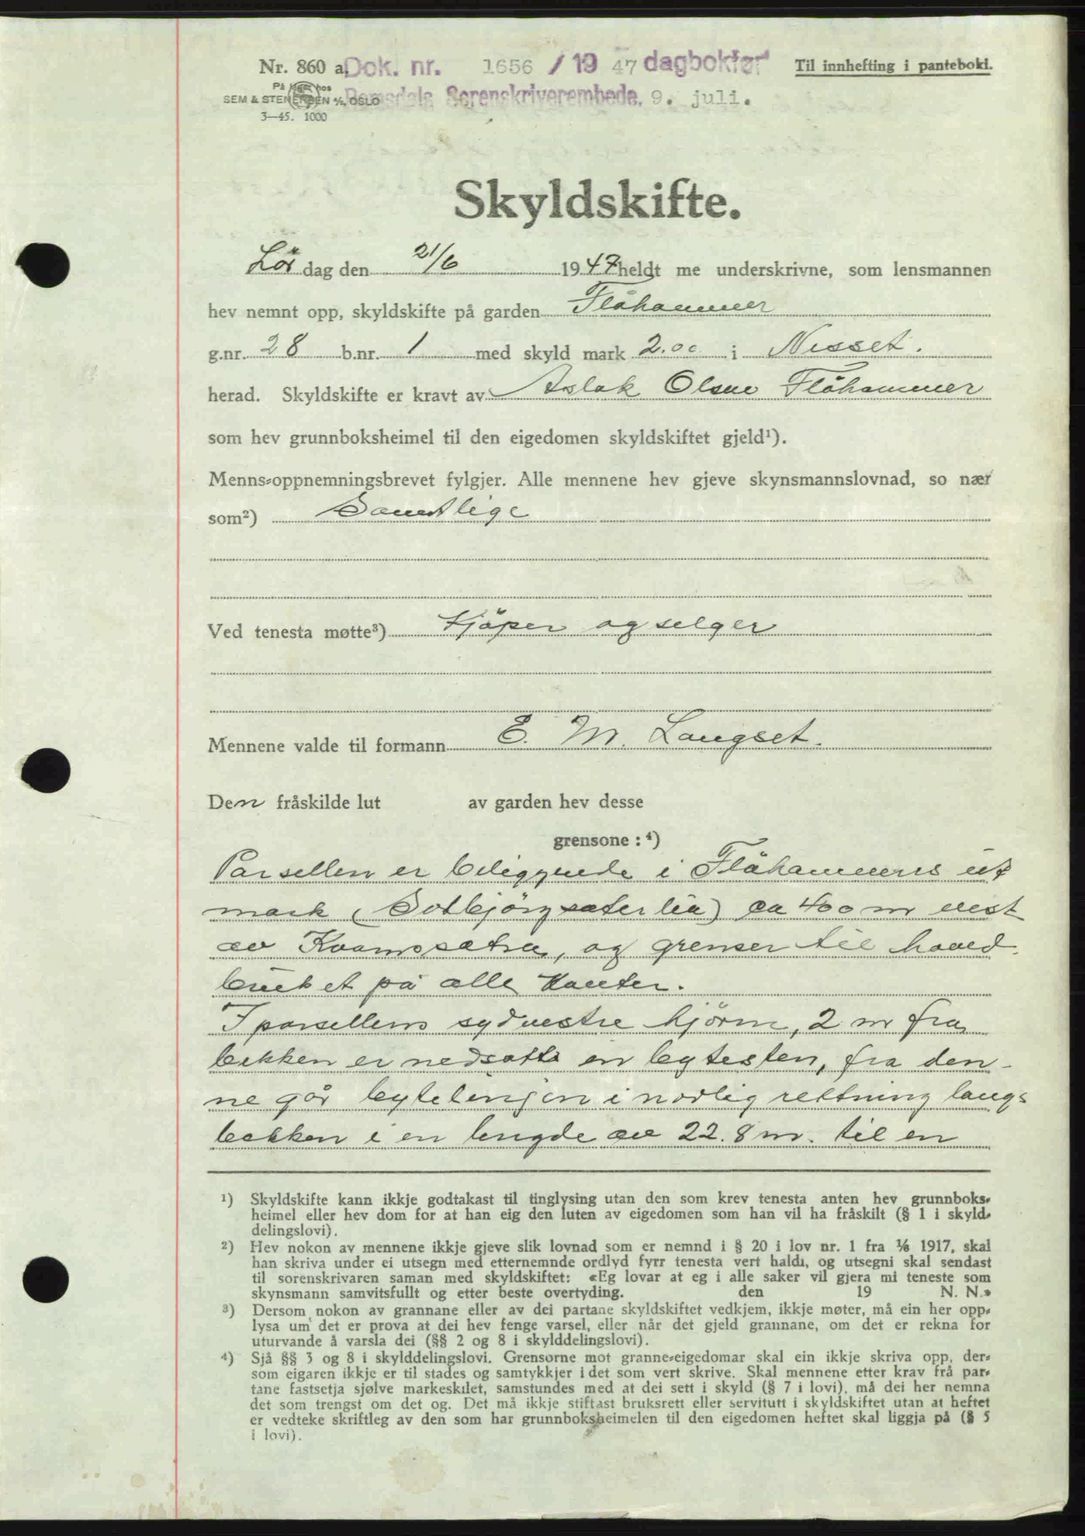 Nr. 860 a. Dok. nr. 1656 / 19 47 dagbokført Til innhefting i panteboki.
På lager hos
SEM & STENERSEN A/S, OSLO Romsdals Sorenskriverembede, 9. juli.
3—45. 1000
Skyldskifte.
Lör dag den 21/6 1947 heldt me underskrivne, som lensmannen
hev nemnt opp, skyldskifte på garden Flåhammer
g.nr. 28 b.nr. 1 med skyld mark 2.00 i Nesset.
herad. Skyldskifte er kravt av Aslak Olsen Flåhammer
som hev grunnboksheimel til den eigedomen skyldskiftet gjeld¹).
Menns-oppnemningsbrevet fylgjer. Alle mennene hev gjeve skynsmannslovnad, so nær
som²) Samtlige
Ved tenesta møtte³) Kjöper og selger
Mennene valde til formann E. M. Langset.
Den fråskilde lut av garden hev desse
grensone : ⁴)
Parsellen er beliggende i Flåhammers ut
mark (Solbjörgsæterlia) ca 400 m vest
av Kvamsætra, og grenser til hoved
bruket på alle kanter.
I parsellens sydvestre hjörne, 2 m fra
bekken er nedsatt en bytesten, fra den-
ne går bytelinjen i nordlig rettning langs
bekken i en lengde av 22.8 m. til en
¹) Skyldskifte kann ikkje godtakast til tinglysing utan den som krev tenesta anten hev grunnboks-
heimel eller hev dom for at han eig den luten av eigedomen som han vil ha fråskilt (§ 1 i skyld-
delingslovi).
²) Hev nokon av mennene ikkje gjeve slik lovnad som er nemnd i § 20 i lov nr. 1 fra 1/6 1917, skal
han skriva under ei utsegn med etternemnde ordlyd fyrr tenesta vert haldi, og utsegni skal sendast
til sorenskrivaren saman med skyldskiftet: «Eg lovar at eg i alle saker vil gjera mi teneste som
skynsmann samvitsfullt og etter beste overtyding. den 19 N. N.»
³) Dersom nokon av grannane eller av dei partane skyldskiftet vedkjem, ikkje møter, må ein her opp-
lysa um det er prova at dei hev fenge varsel, eller når det gjeld grannane, om det er rekna for
uturvande å varsla dei (§§ 2 og 8 i skylddelingslovi).
⁴) Sjå §§ 3 og 8 i skylddelingslovi. Grensorne mot granne-eigedomar skal ein ikkje skriva opp, der-
som eigaren ikkje er til stades og samtykkjer i det som vert skrive. Skal mennene etter krav frå par-
tane fastsetja sjølve markeskilet, samstundes med at dei sett i skyld (§ 7 i lovi), må dei her nemna
det som trengst om det og. Det må ikkje stiftast bruksrett eller servitutt i skyldskiftet utan at heftet
er vedteke skriftleg av den som har grunnboksheimelen til den eigedomen heftet skal liggja på (§ 5
i lovi).